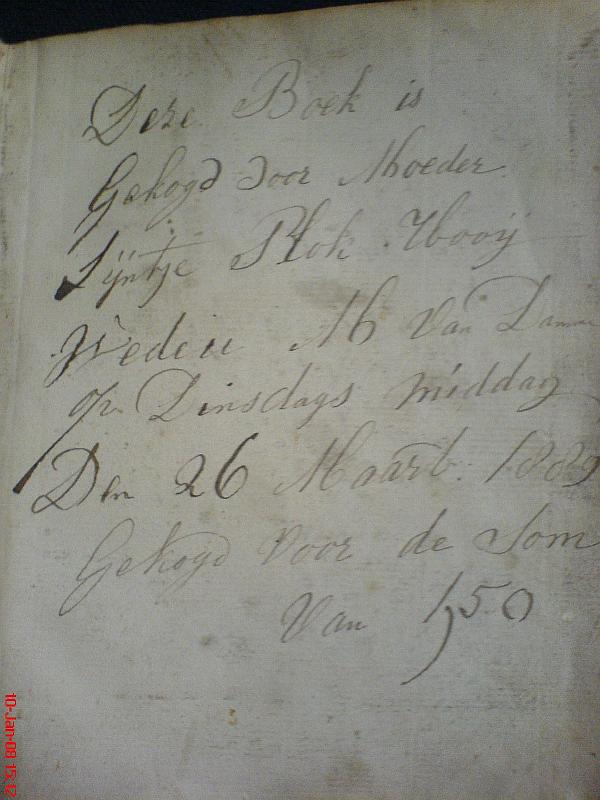 Deze Boek is
Gekogd door Moeder
Sijntje Plok Wooij
Wedeu M Van Damme
op Dinsdags middag
Den 26 Maart 1889
Gekogd voor de Som
Van 1,50
10-Jan-08 15:12